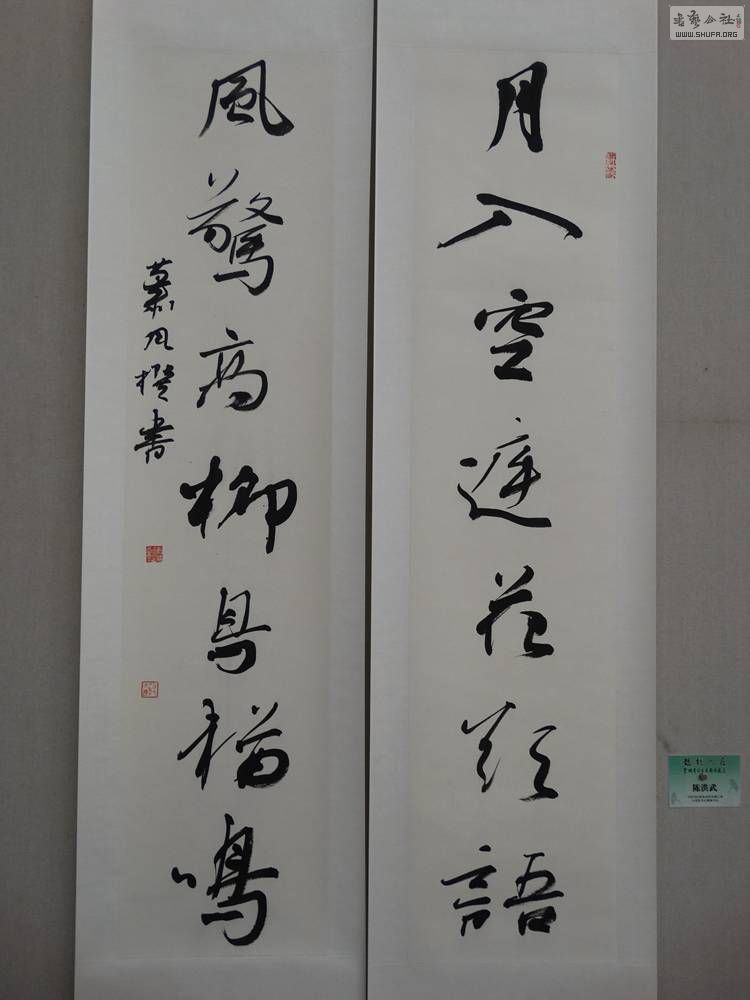 月入空庭花欲語
風驚高柳鳥猶鳴
書藝公社
WWW.SHUFA.ORG
陈洪武